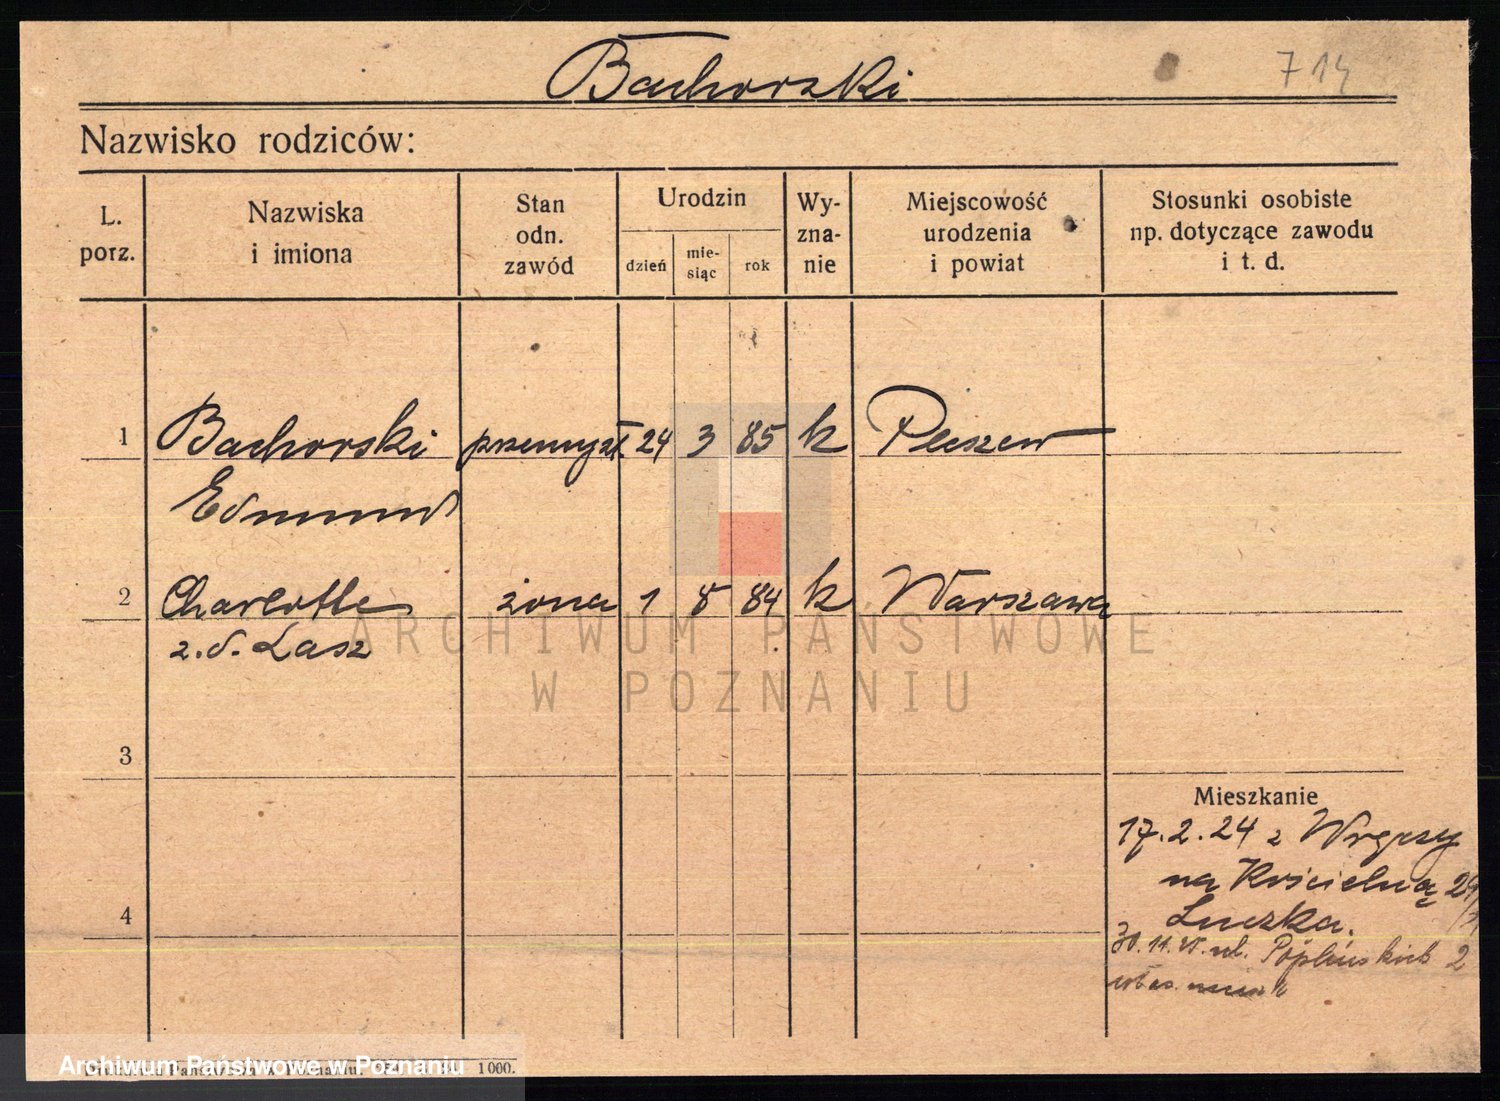 Bachorski
714
Nazwisko rodziców:
L. porz.
Nazwiska i imiona
Stan odn. zawód
Urodzin
dzień
mie-
siąc
rok
Wy-
zna-
nie
Miejscowość
urodzenia
i powiat
Stosunki osobiste
np. dotyczące zawodu
i t. d.
1 Bachorski przemysł. 24 3 85 k Pleszew
Edmund
2 Charlotte żona 1 8 84 k Warszawa
z.d. Lasz
ARCHIWUM PAŃSTWOWE
W POZNANIU
3
Mieszkanie
17.2.24 z
na Kościelną
4
ul. 2
Archiwum Państwowe w Poznaniu
1000.